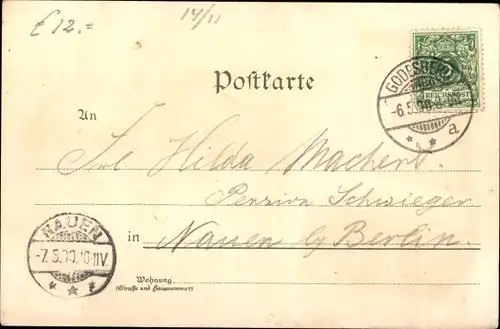 £12.=
14/11
Postkarte
REICHSPOST
GODESBERG
-6.5.00.
a
An
Frl. Hilda Machert.
Pension Schwieger
in Nauen b/ Berlin.
NAUEN
-7.5.00.10-11V.
Wohnung
(Straße und Hausnummer)